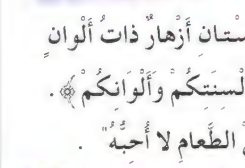 ستان أَزْهارٌ ذاتُ أَلْوانٍ
لْسِنَتِكُمْ وَأَلْوَانِكُمْ ﴾ .
الطَّعامِ لا أُحِبُّهُ" .